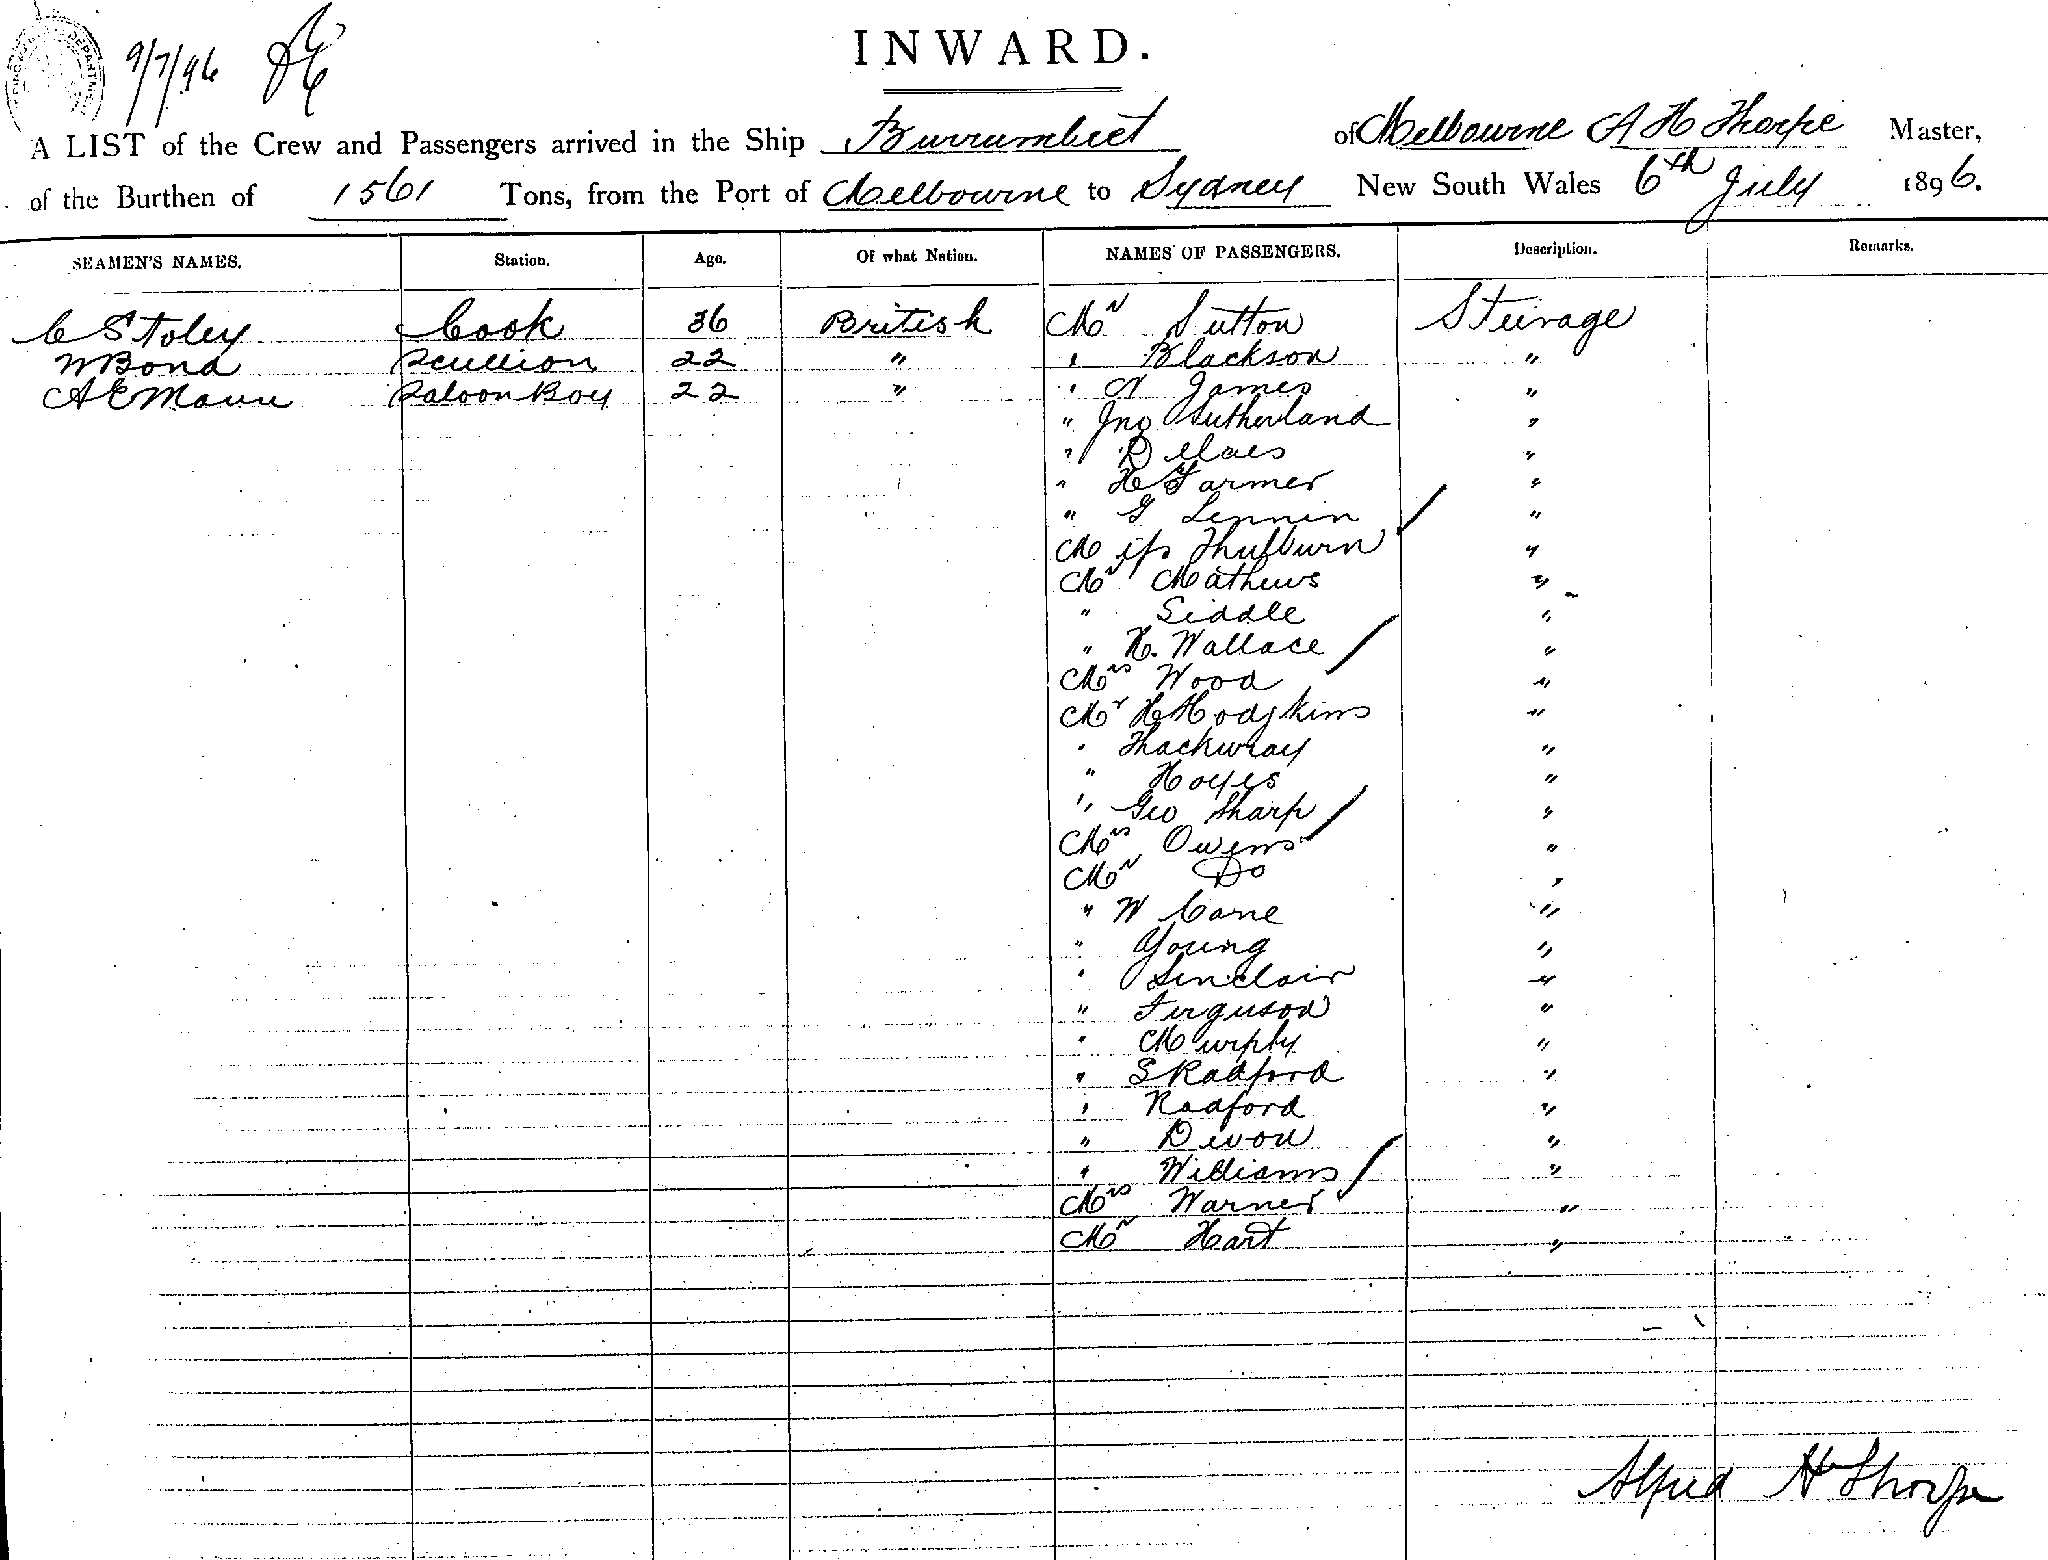 9/7/96
INWARD.
A LIST of the Crew and Passengers arrived in the Ship Burrumbeet of Melbourne A H Thorpe Master,
of the Burthen of 1561 Tons, from the Port of Melbourne to Sydney New South Wales 6th July 1896.
SEAMEN'S NAMES. Station. Age. Of what Nation. NAMES OF PASSENGERS. Description. Remarks.
C Stoley Cook 36 British Mr Sutton Steirage
W Bond Scullion 22 " " Blackson "
A E Mann Saloon Boy 22 " " N James "
" Jno Sutherland "
" D "
" H Farmer "
" G Lennin "
Miss "
Mr Mathews "
" Siddle "
" H. Wallace "
Mrs Wood "
Mr H Hodgkins "
" Thackwray "
" Hoyes "
" Geo Sharp "
Mrs Owens "
Mr Do "
" W Cane "
" Young "
" Sinclair "
" Ferguson "
" Murphy "
" S Radford "
" Radford "
" Devon "
" Williams "
Mrs Warner "
Mr Hart "
Alfred H Thorpe